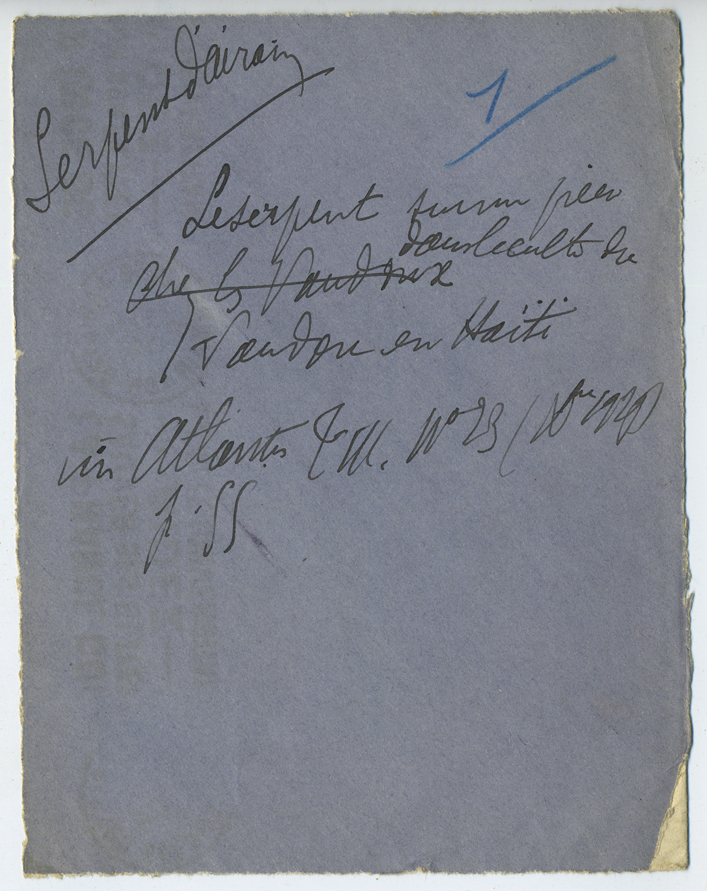 Serpent d'airain
1
Le serpent sur un pieu
chez les Vaudoux dans le culte du
Vaudou en Haïti
in Atlantis T III. N° 23 (Xbre 1929)
p. 55